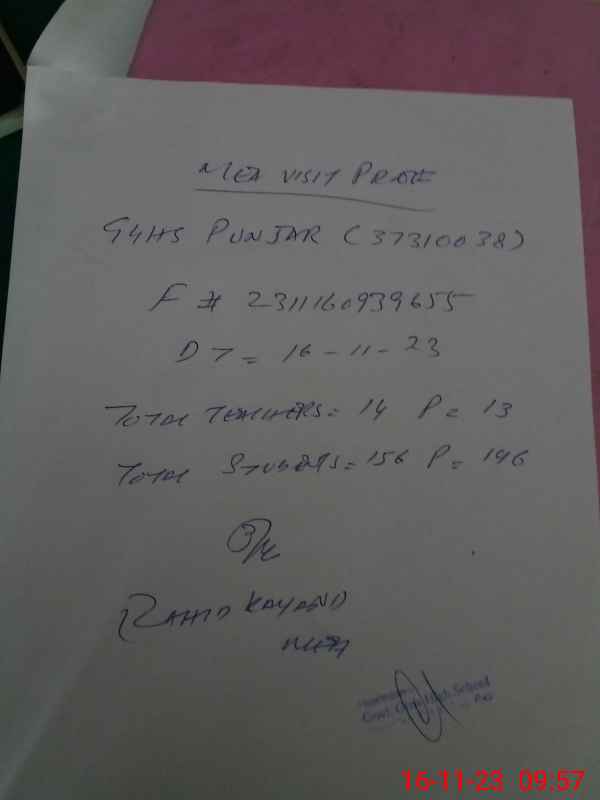 MEA VISIT PROOF
GGHS PUNJAR (37310038)
F # 2311160939655
DT = 16-11-23
TOTAL TEACHERS = 14 P = 13
TOTAL STUDENTS = 156 P = 146
MEA
Govt. Girls High School
16-11-23 09:57